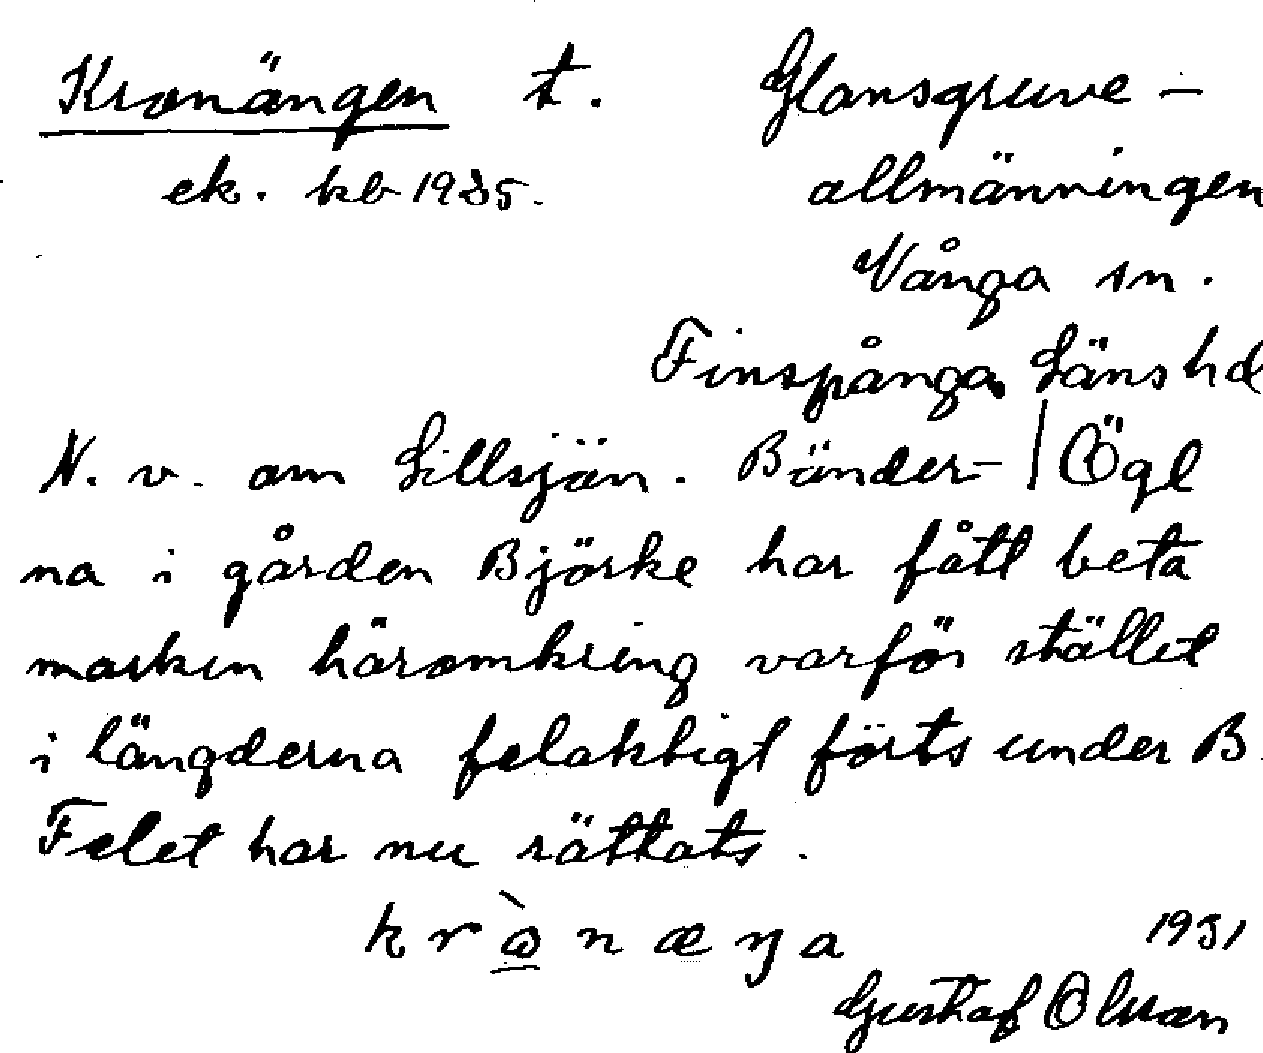 Kronängen t. Glansgruve-
ek. kb 1935. allmänningen
Vånga sn.
Finspånga Länshd
N. v. om Lillsjön. Bönder- | Ögl
na i gården Björke har fått beta
marken häromkring varför stället
i längderna felaktigt förts under B.
Felet har nu rättats.
k r ò n æ ŋ a
1931
Gustaf Olsson